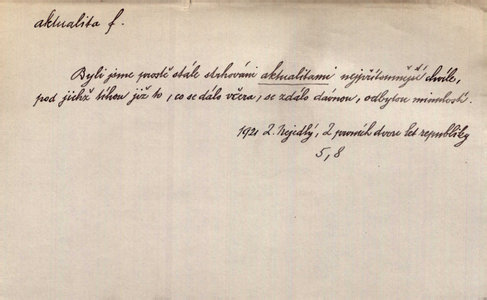 aktualita f.
Byli jsme prostě stále strhováni aktualitami nejpřítomnější chvíle,
pod jichž tíhou již to, co se dálo včera, se zdálo dávnou, odbytou minulostí.
1921 Z. Nejedlý, Z prvních dvou let republiky
5, 8